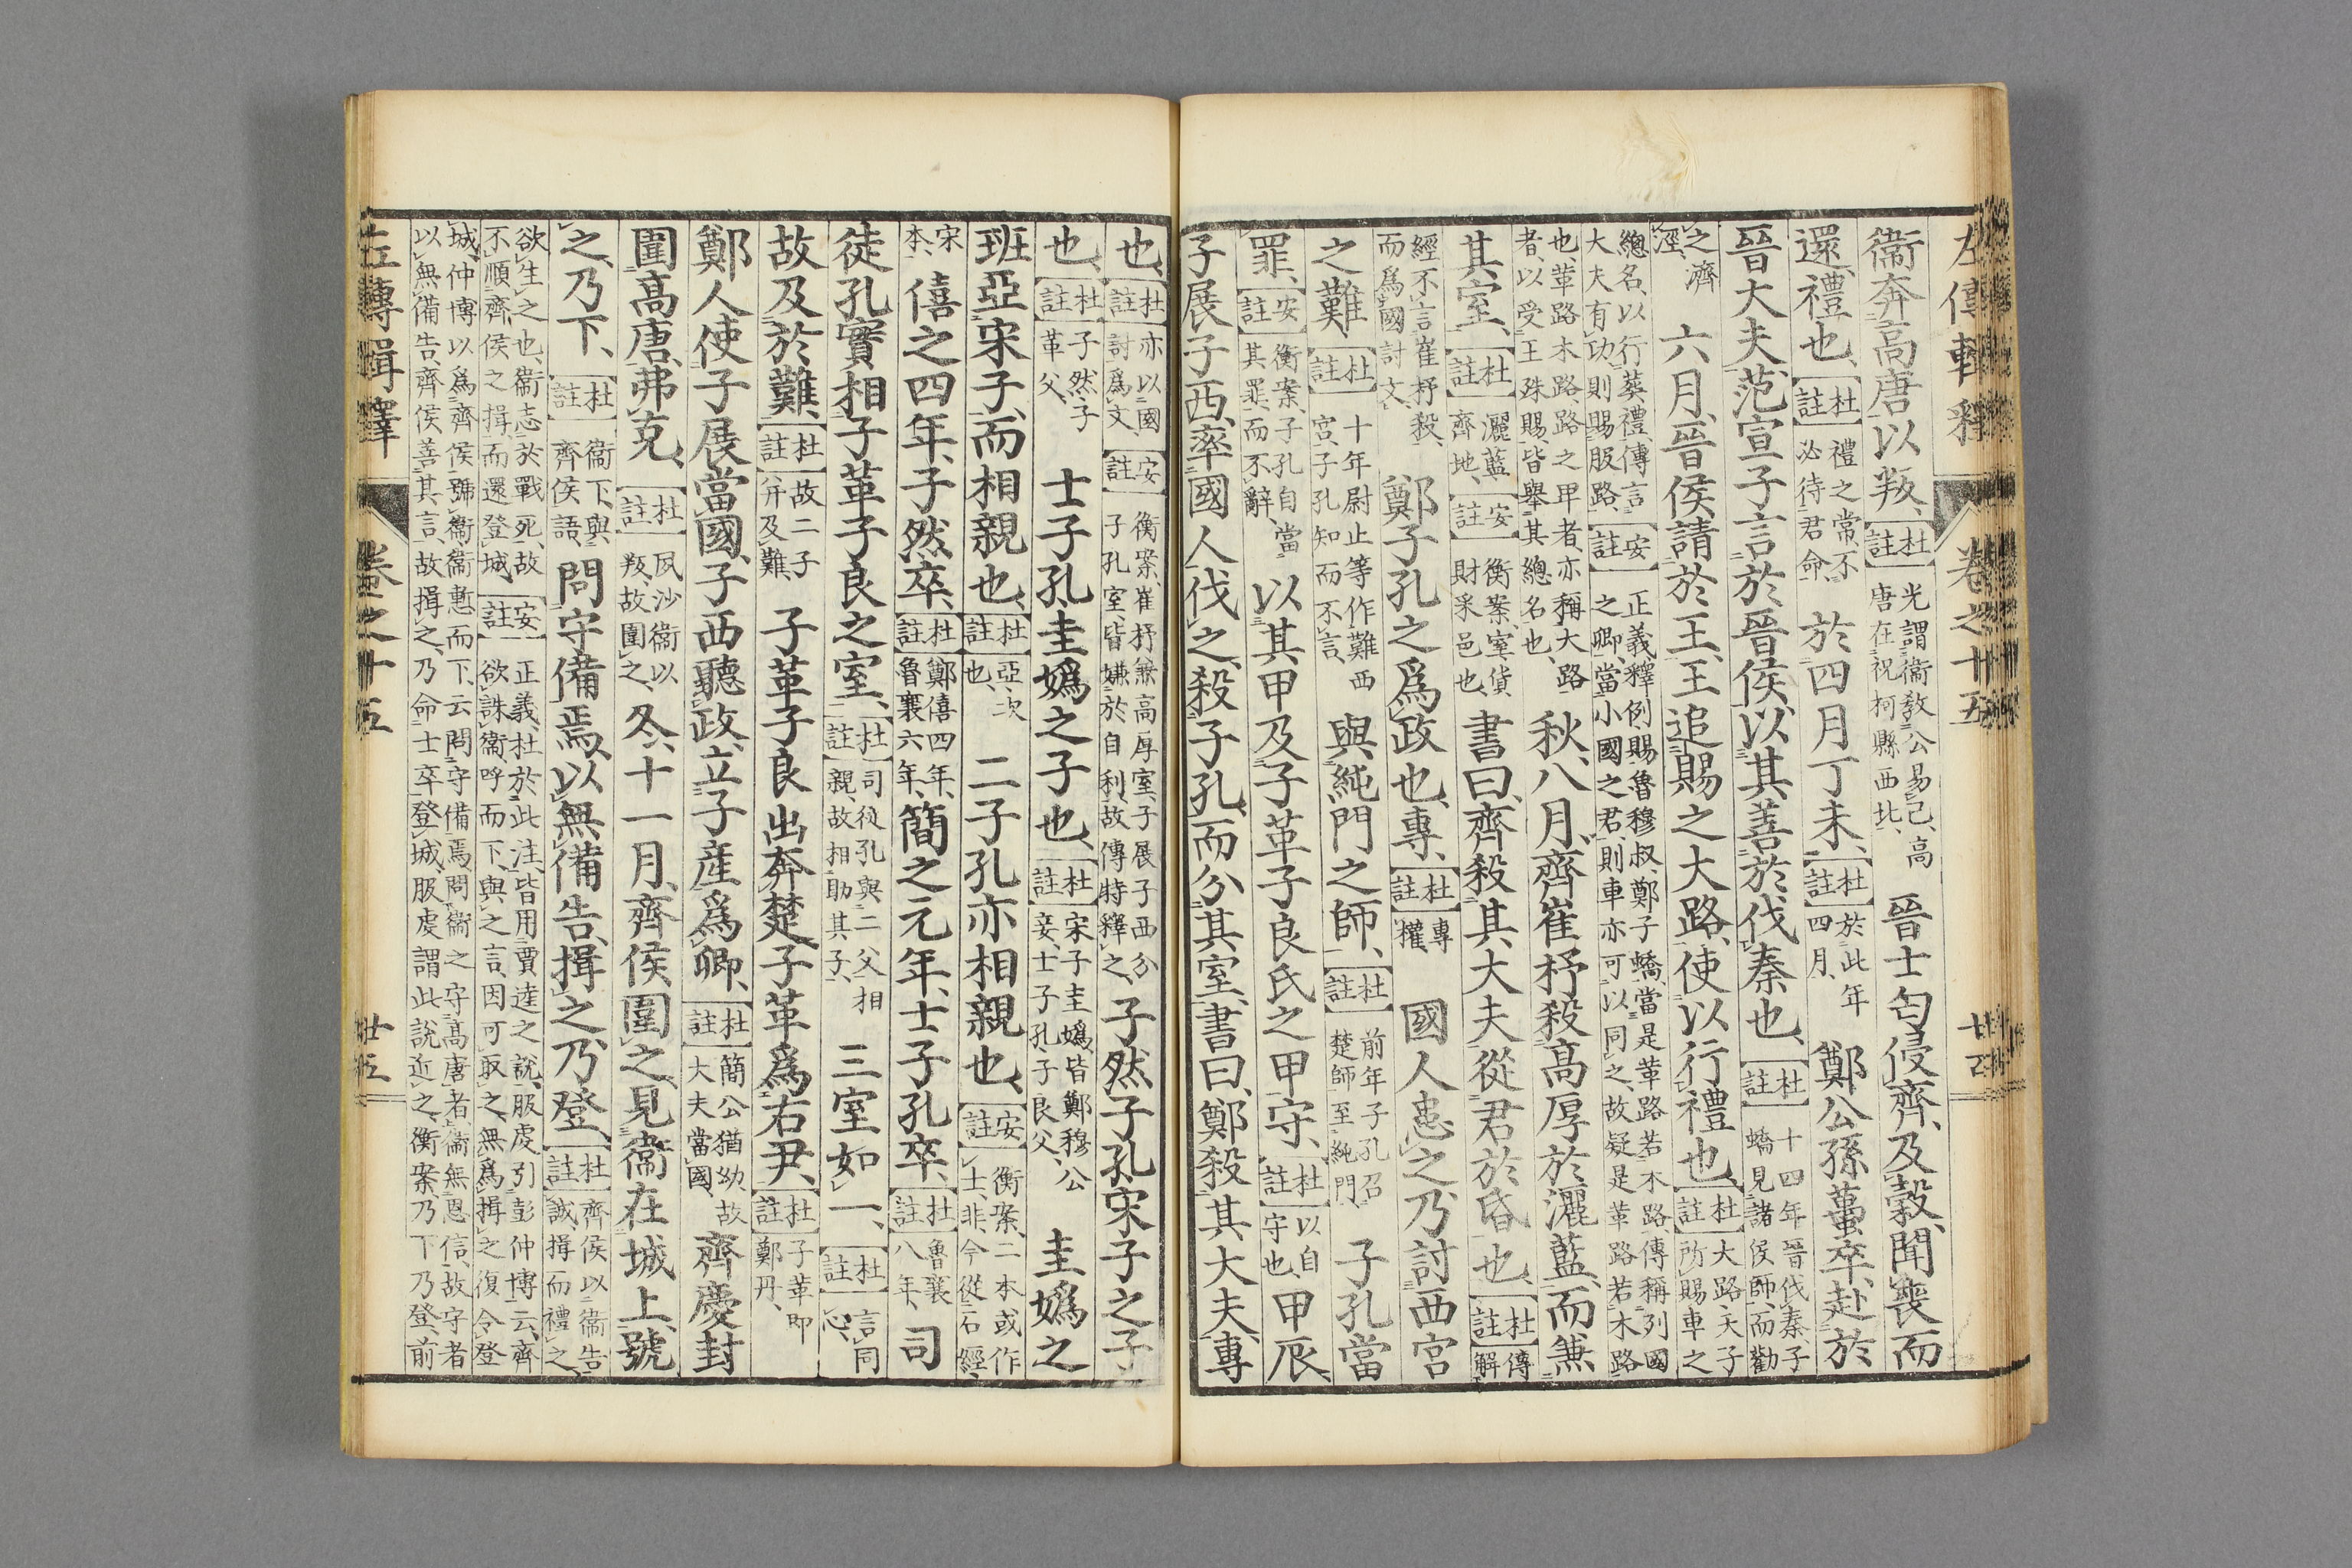 左傳輯釋 卷之十五
衞奔高唐以叛、杜註光謂衞敎公易己、高唐在祝柯縣西北、 晉士匄侵齊、及穀、聞喪而
還、禮也、杜註禮之常、不必待君命、 於四月丁未、杜註於此年四月、 鄭公孫蠆卒、赴於
晉大夫、范宣子言於晉侯、以其善於伐秦也、杜註十四年晉伐秦、子蟜見諸侯師、而勸
之濟涇、 六月、晉侯請於王、王追賜之大路、使以行禮也、杜註大路、天子所賜車之
總名、以行葬禮、傳言大夫有功、則賜服路、安註正義、釋例、賜魯穆叔、鄭子蟜、當是革路若木路、傳稱列國之卿、當小國之君、則車亦可以同之、故疑是革路若木路
也、革路木路、路之甲者、亦稱大路者、以受王殊賜、皆舉其總名也、 秋、八月、齊崔杼殺高厚於灑藍、而兼
其室、杜註灑藍齊地、安註衡案、室、貨財采邑也、 書曰、齊殺其大夫、從君於昏也、杜註傳解
經不言崔杼殺、而爲國討文、 鄭子孔之爲政也、專、杜註專權 國人患之、乃討西宮
之難、杜註十年尉止等作難西宮、子孔知而不言、 與純門之師、杜註前年子孔召楚師至純門、 子孔當
罪、安註衡案、子孔自當其罪、而不辭、 以其甲及子革子良氏之甲守、杜註以自守也、 甲辰、
子展子西率國人伐之、殺子孔、而分其室、書曰、鄭殺其大夫、專
也、杜註亦以國討爲文、安註衡案、崔杼兼高厚室、子展子西分子孔室、皆嫌於自利、故傳特釋之、 子然子孔、宋子之子
也、杜註子然、子革父、 士子孔、圭嬀之子也、杜註宋子圭嬀、皆鄭穆公妾、士子孔、子良父、 圭嬀之
班亞宋子、而相親也、杜註亞、次也、 二子孔亦相親也、安註衡案、二本或作士、非、今從石經、
宋本、 僖之四年、子然卒、杜註鄭僖四年、魯襄六年、 簡之元年、士子孔卒、杜註魯襄八年、 司
徒孔實相子革子良之室、杜註司徒孔與二父相親、故相助其子、 三室如一、杜註言同心、
故及於難、杜註故二子并及難、 子革子良出奔楚、子革爲右尹、杜註子革即鄭丹、
鄭人使子展當國、子西聽政、立子產爲卿、杜註簡公猶幼、故大夫當國、 齊慶封
圍高唐、弗克、杜註夙沙衞以叛、故圍之、 冬、十一月、齊侯圍之、見衞在城上、號
之、乃下、杜註衞下、與齊侯語、 問守備焉、以無備告、揖之、乃登、杜註齊侯以衞告誠、揖而禮之、
欲生之也、衞志於戰死、故不順齊侯之揖、而還登城、安註正義、杜於此注、皆用賈逵之說、服虔引彭仲博云、齊欲誅衞、呼而下、與之言、因可取之、無爲揖之復令登
城、仲博以爲、齊侯號衞、衞慙而下、云問守備焉、問衞之守高唐者、衞無恩信、故守者以無備告、齊侯善其言、故揖之、乃命士卒登城、服虔謂此說近之、衡案、乃下乃登、前
左傳輯釋 卷之十五 廿五